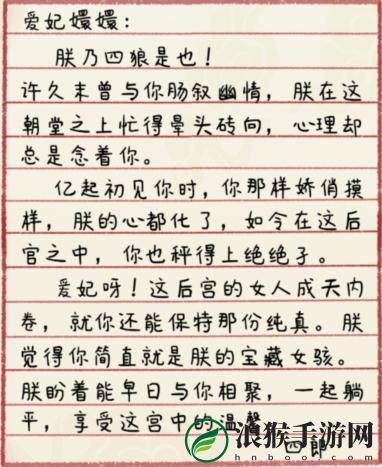 爱妃嬛嬛：
朕乃四狼是也！
许久末曾与你肠叙幽情，朕在这
朝堂之上忙得晕头砖向，心理却
总是念着你。
亿起初见你时，你那样娇俏摸
样，朕的心都化了，如令在这后
官之中，你也秤得上绝绝子。
爰妃呀！这后宫的女人成天内
卷，就你还能保特那份纯真。朕
觉得你简直就是朕的宝藏女骇。
朕盼着能早日与你相聚，一起躺
平，享受这宫中的温馨
四郎
浪猴手游网
hnbooj.com